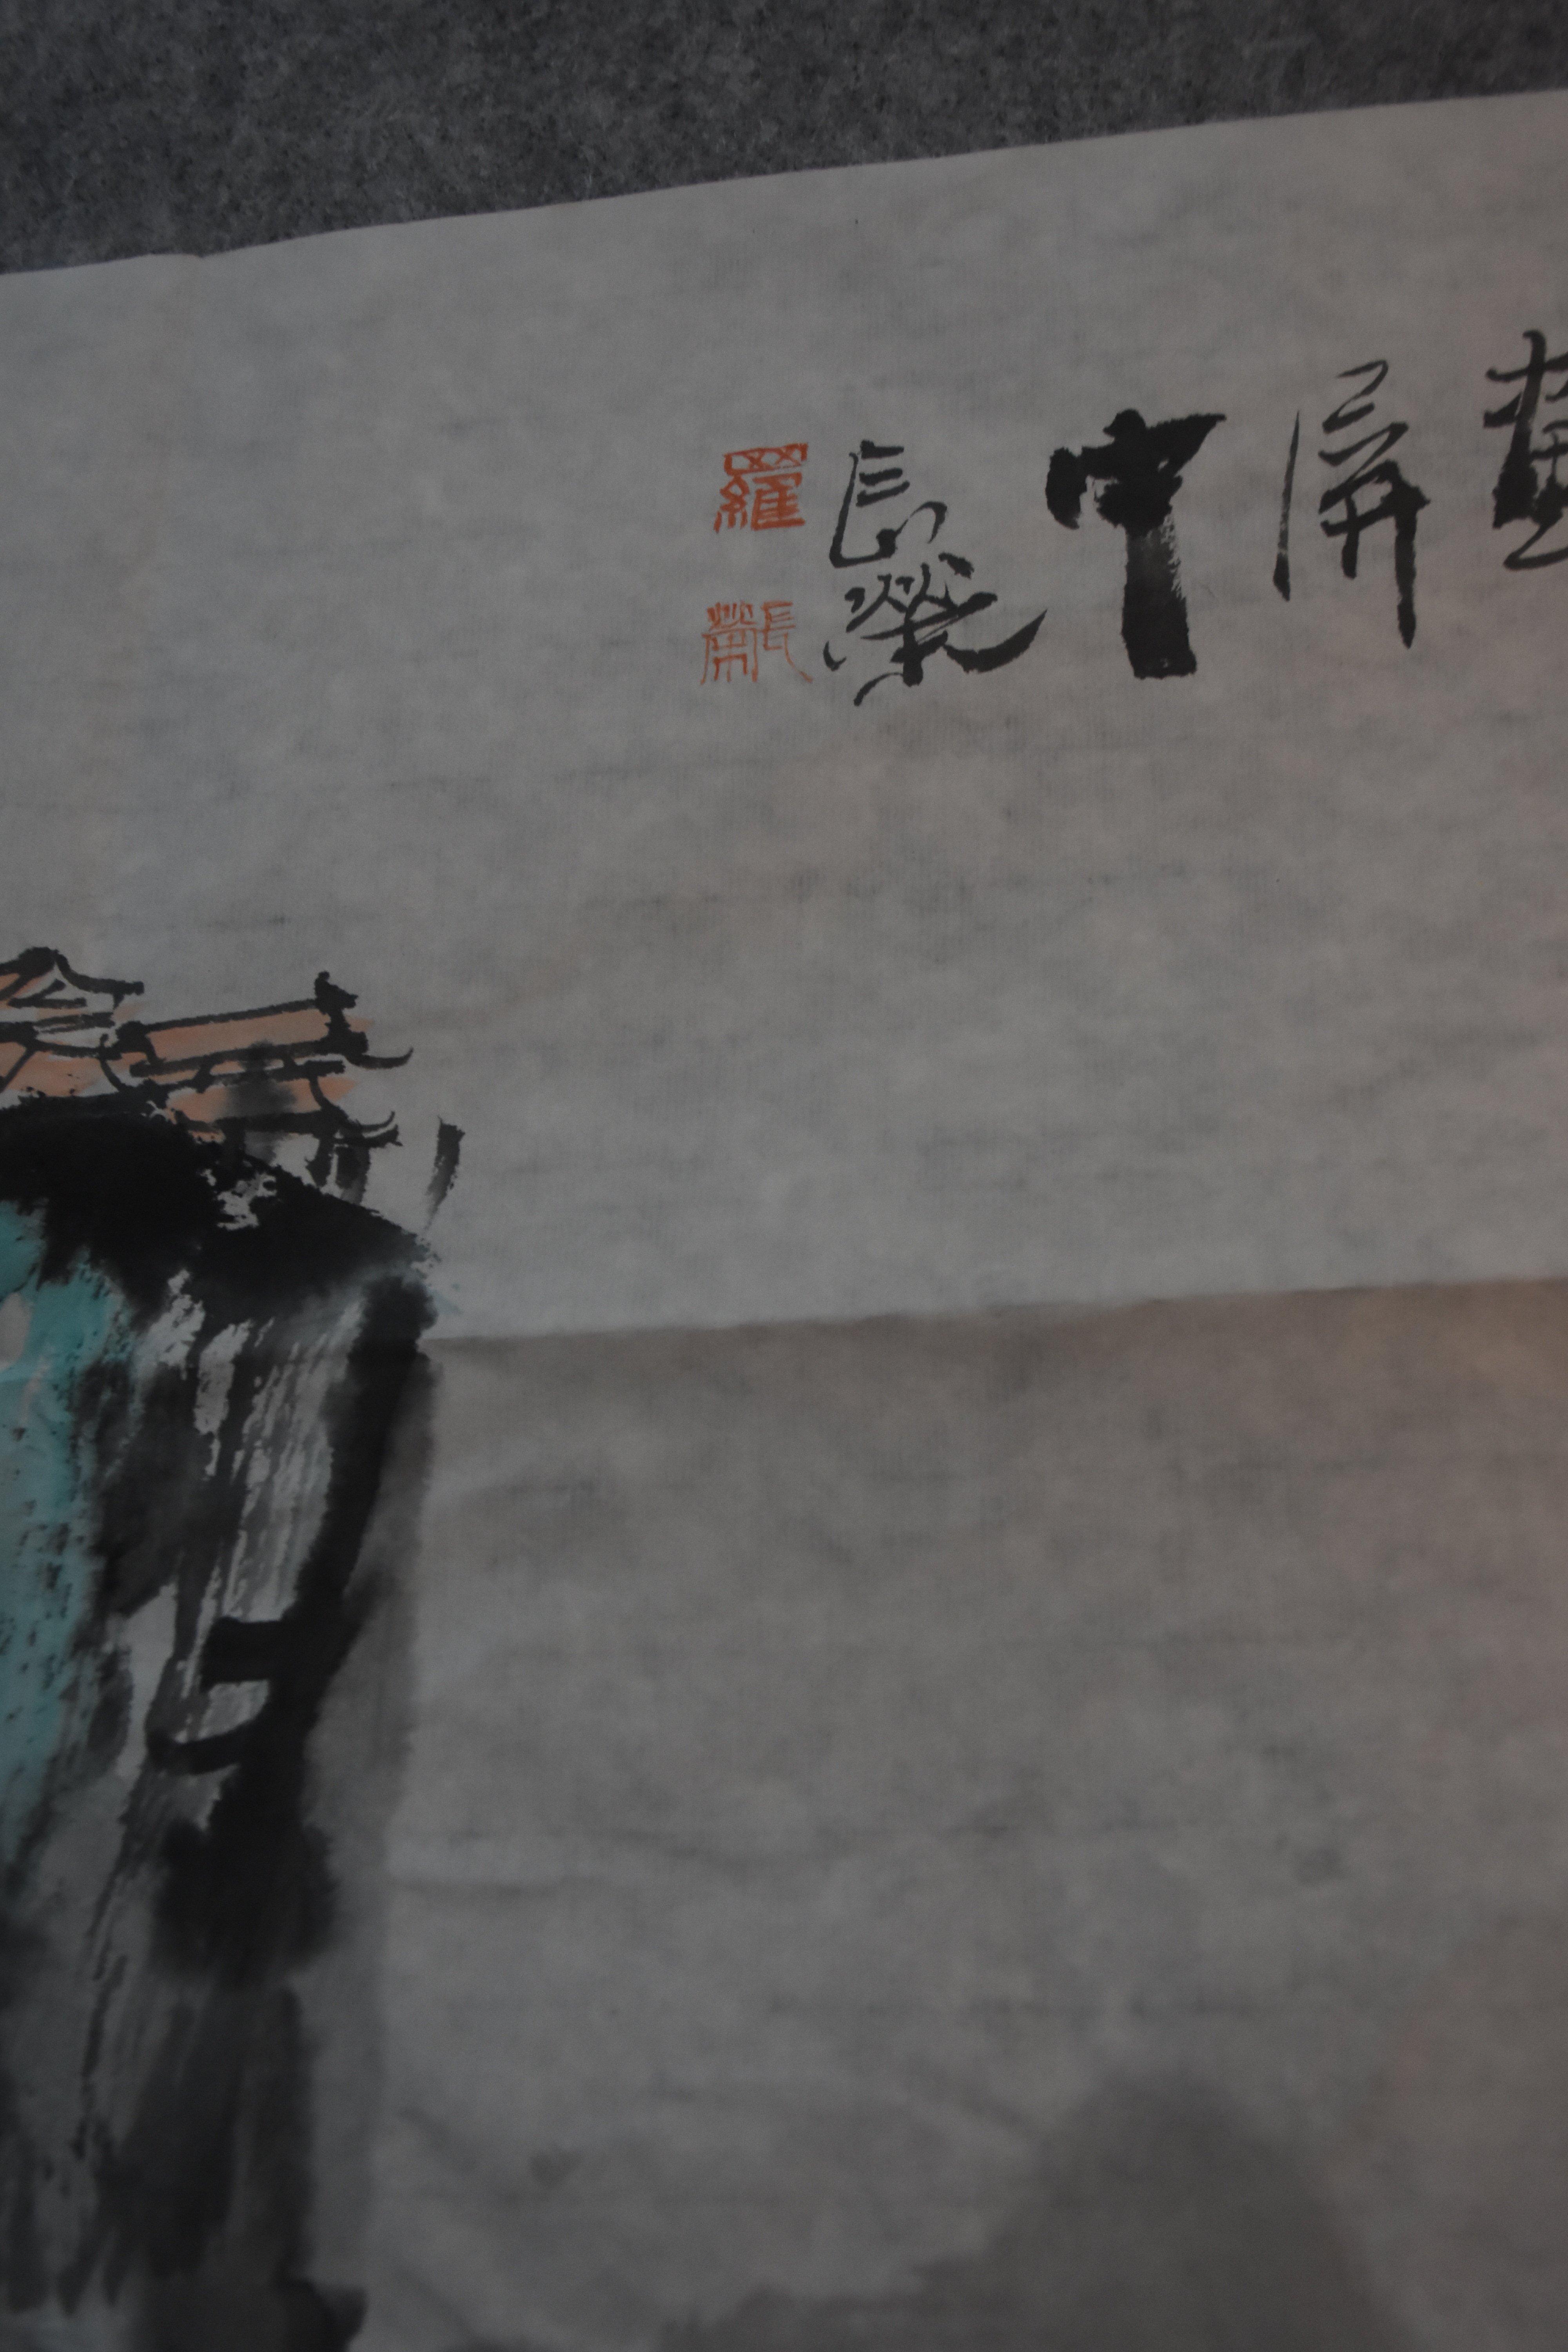 畫屏中
長榮
羅
長榮